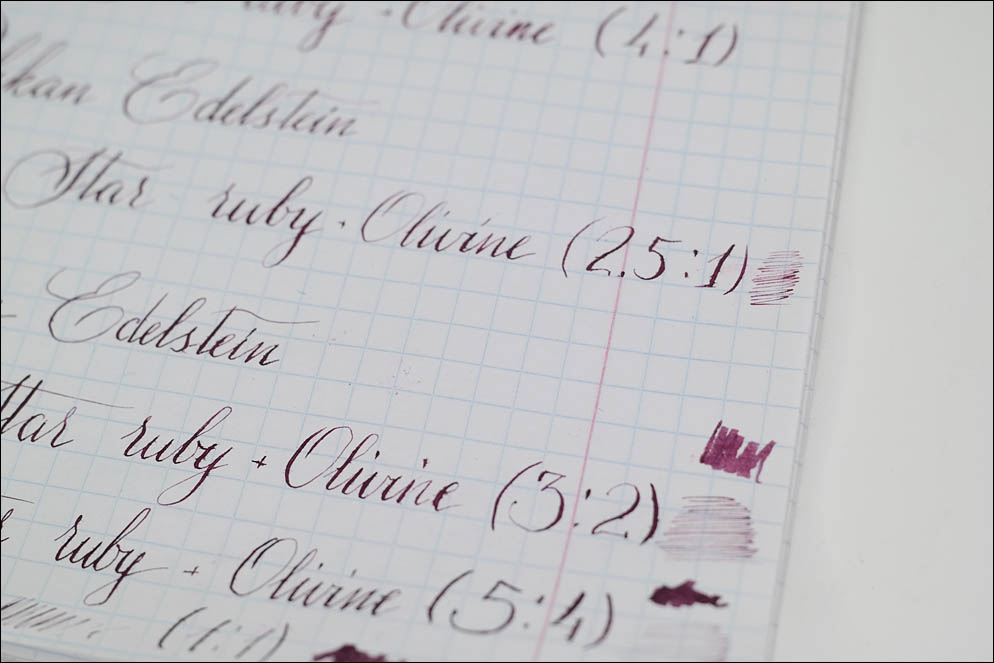 ruby + Olivine (4:1)
Edelstein
Star ruby + Olivine (2.5:1)
Edelstein
Star ruby + Olivine (3:2)
ruby + Olivine (5:4)
(1:1)